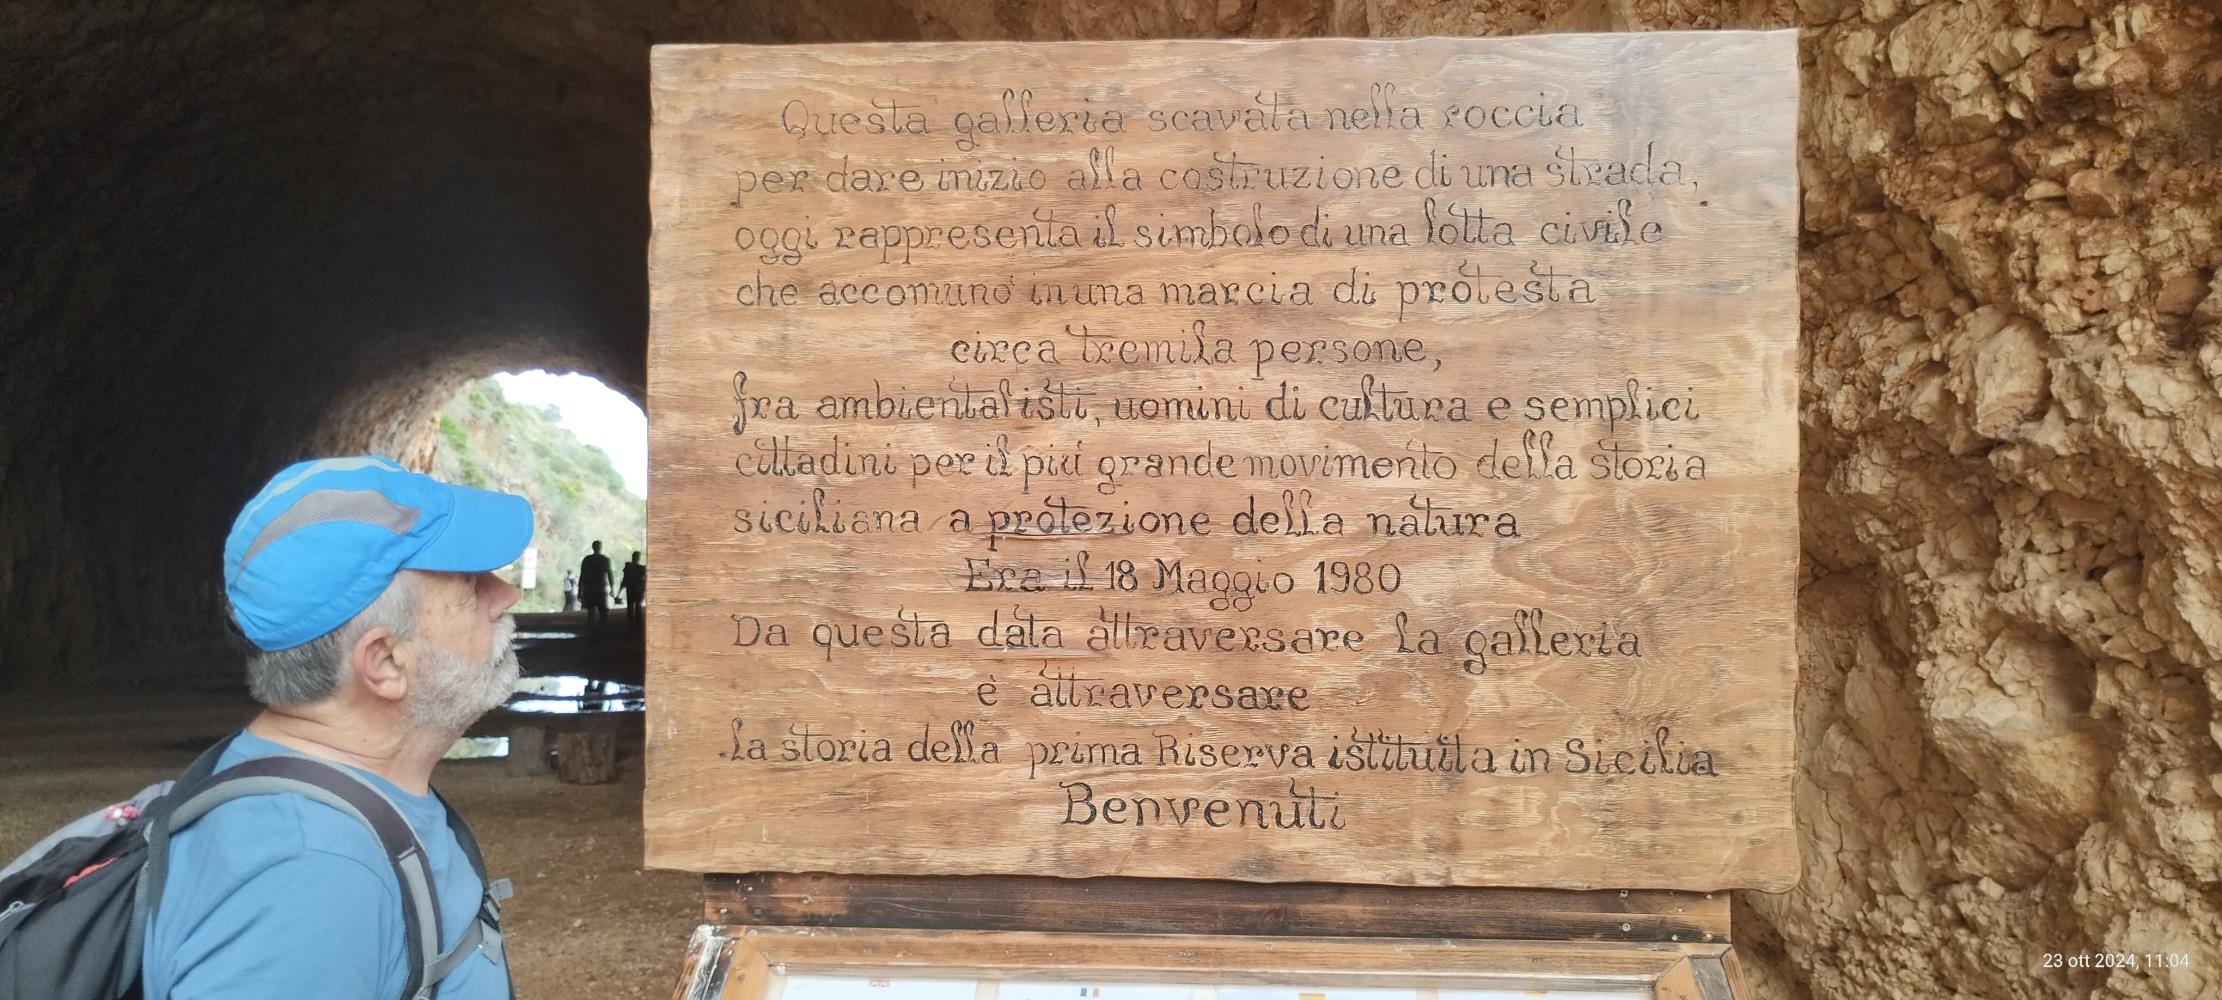 Questa galleria scavata nella roccia
per dare inizio alla costruzione di una strada,
oggi rappresenta il simbolo di una lotta civile
che accomunò in una marcia di protesta
circa tremila persone,
fra ambientalisti, uomini di cultura e semplici
cittadini per il più grande movimento della storia
siciliana a protezione della natura
Era il 18 Maggio 1980
Da questa data attraversare la galleria
è attraversare
la storia della prima Riserva istituita in Sicilia
Benvenuti
23 ott 2024, 11:04